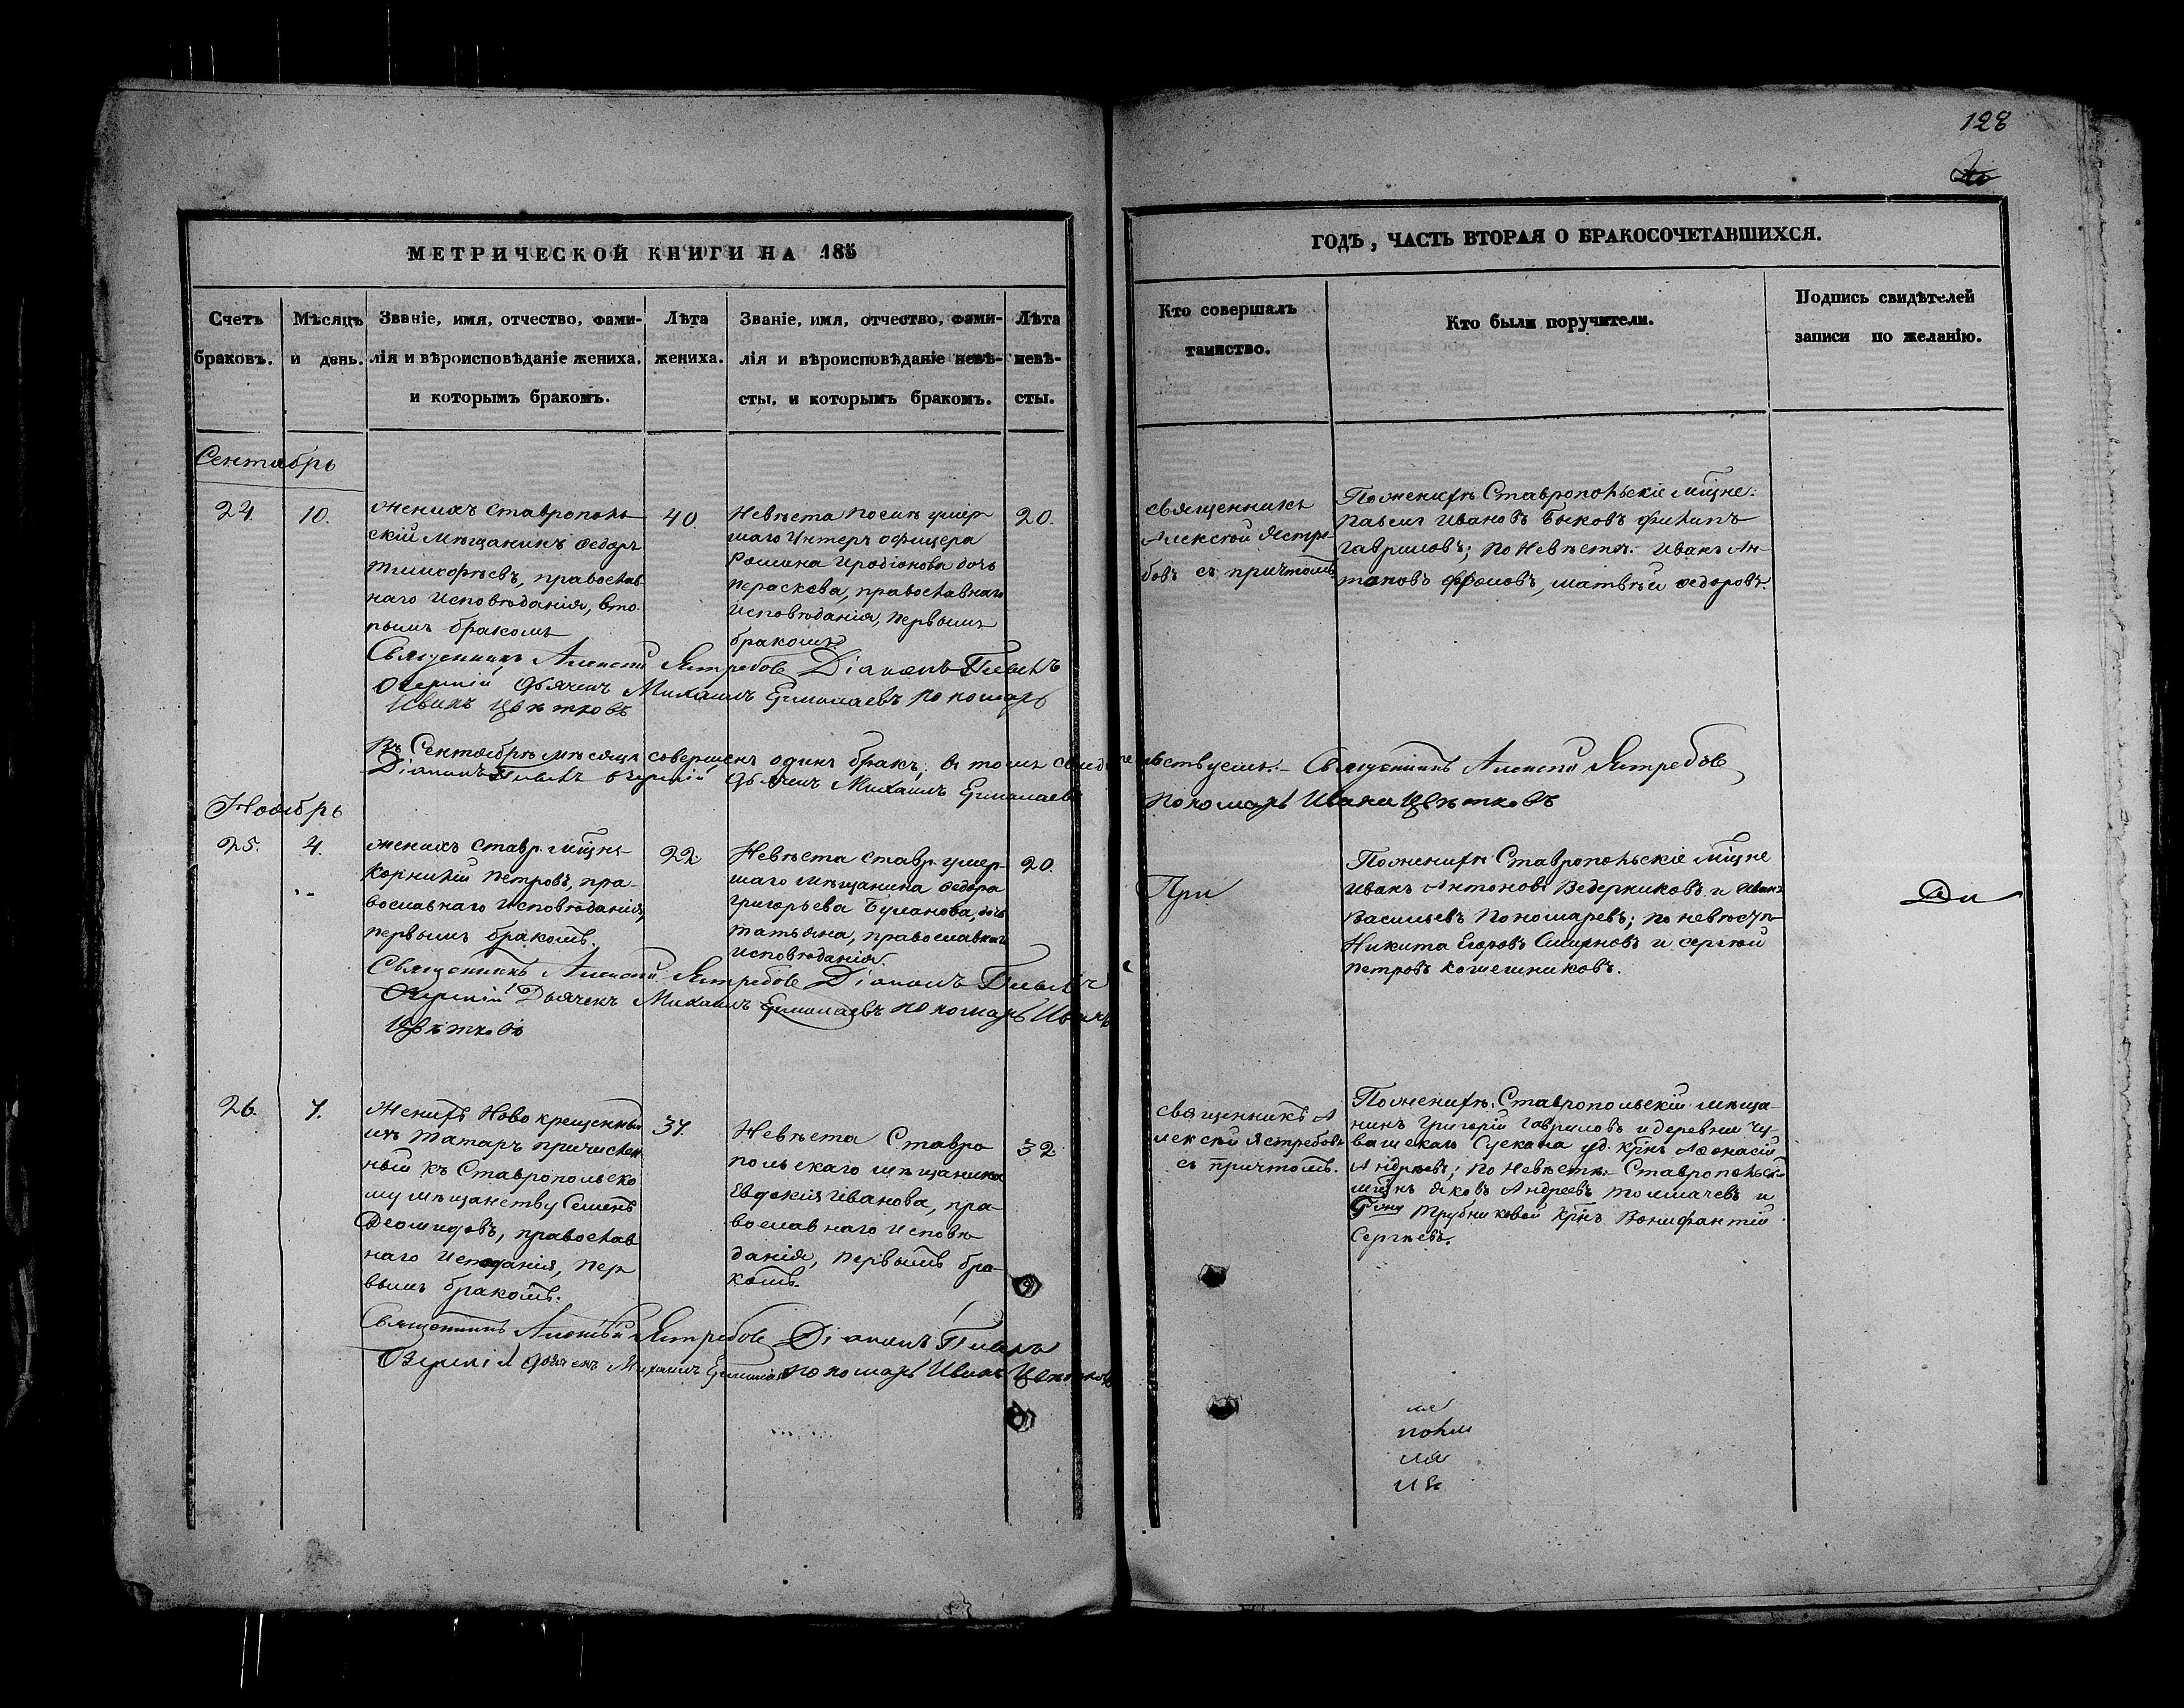 128
МЕТРИЧЕСКОЙ КНИГИ НА 185
ГОДЪ, ЧАСТЬ ВТОРАЯ О БРАКОСОЧЕТАВШИХСЯ.
Счетъ
браковъ.
Мѣсяцъ
и день.
Званіе, имя, отчество, фами-
лія и вѣроисповѣданіе жениха,
и которымъ бракомъ.
Лѣта
жениха.
Званіе, имя, отчество, фами-
лія и вѣроисповѣданіе невѣ-
сты, и которымъ бракомъ.
Лѣта
невѣ-
сты.
Кто совершалъ
таинство.
Кто были поручители.
Подпись свидѣтелей
записи по желанію.
Сентябрь
24.
10.
Женихъ Ставрополь
скій Мѣщанинъ Федоръ
Тимофѣевъ, православ
наго Исповѣданія, вто
рымъ бракомъ
40.
Невѣста послѣ умер
шаго Унтеръ офицера
Иродіонова дочь
Параскева, православнаго
Исповѣданія, первымъ
бракомъ.
20.
священникъ
Алексѣй Ястре-
бовъ съ причтомъ
По женихѣ Ставропольскіе Мщне:
Ивановъ Быковъ Филипъ
Гавриловъ; по Невѣстѣ: Иванъ Ан-
тоновъ матвѣй Федоровъ.
Священникъ Алексѣй Ястребовъ Діаконъ Павелъ
Озерскій Дьячекъ Михаилъ Ермолаевъ пономарь
Иванъ Цвѣтковъ
Въ Сентябрѣ мѣсяцѣ совершенъ одинъ бракъ; въ томъ свидѣтельствуемъ. Священникъ Алексѣй Ястребовъ
Діаконъ Павелъ Озерскій Дьячекъ Михаилъ Ермолаевъ пономарь Иванъ Цвѣтковъ
Ноябрь
25.
4.
Женихъ Ставр. мщнъ
Корнилій Петровъ, пра-
вославнаго Исповѣданія,
первымъ бракомъ.
22.
Невѣста Ставр. умер-
шаго Мѣщанина Федора
Григорьева дочь
Татьяна, православнаго
Исповѣданія.
20.
При
По женихѣ Ставропольскіе Мщне
Иванъ Антоновъ Ведерниковъ и Иванъ
Васильевъ Пономаревъ; по невѣстѣ
Никита Егоровъ Смирновъ и Сергѣй
Петровъ
Ди
Священникъ Алексѣй Ястребовъ Діаконъ Павелъ
Озерскій Дьячекъ Михаилъ Ермолаевъ пономарь Иванъ
Цвѣтковъ
26.
7.
Женихъ Ново крещенный
изъ татаръ причислен
ный къ Ставропольско
му мѣщанству Семенъ
Деомидовъ, православ
наго Исповданія, пер
вымъ бракомъ.
37.
Невѣста Ставро
польскаго мѣщанина
Евдокія Иванова, пра-
вославнаго Исповѣ
данія, первымъ бра-
комъ.
32.
священникъ А
лексѣй Ястребовъ
съ причтомъ.
По женихѣ: Ставропольскій мѣща-
нинъ Григорій Гавриловъ и деревни Чу-
вашскаго Сускана уд. крнъ Афонасій
Андреевъ; по Невѣстѣ: Ставропольскій
мщнъ Яковъ Андреевъ Толмачевъ и
Трубниковой крнъ Вонифантій
Сергѣевъ.
Священникъ Алексѣй Ястребовъ Діаконъ Павелъ
Озерскій Дьячекъ Михаилъ Ермолаевъ пономарь Иванъ Цвѣтковъ